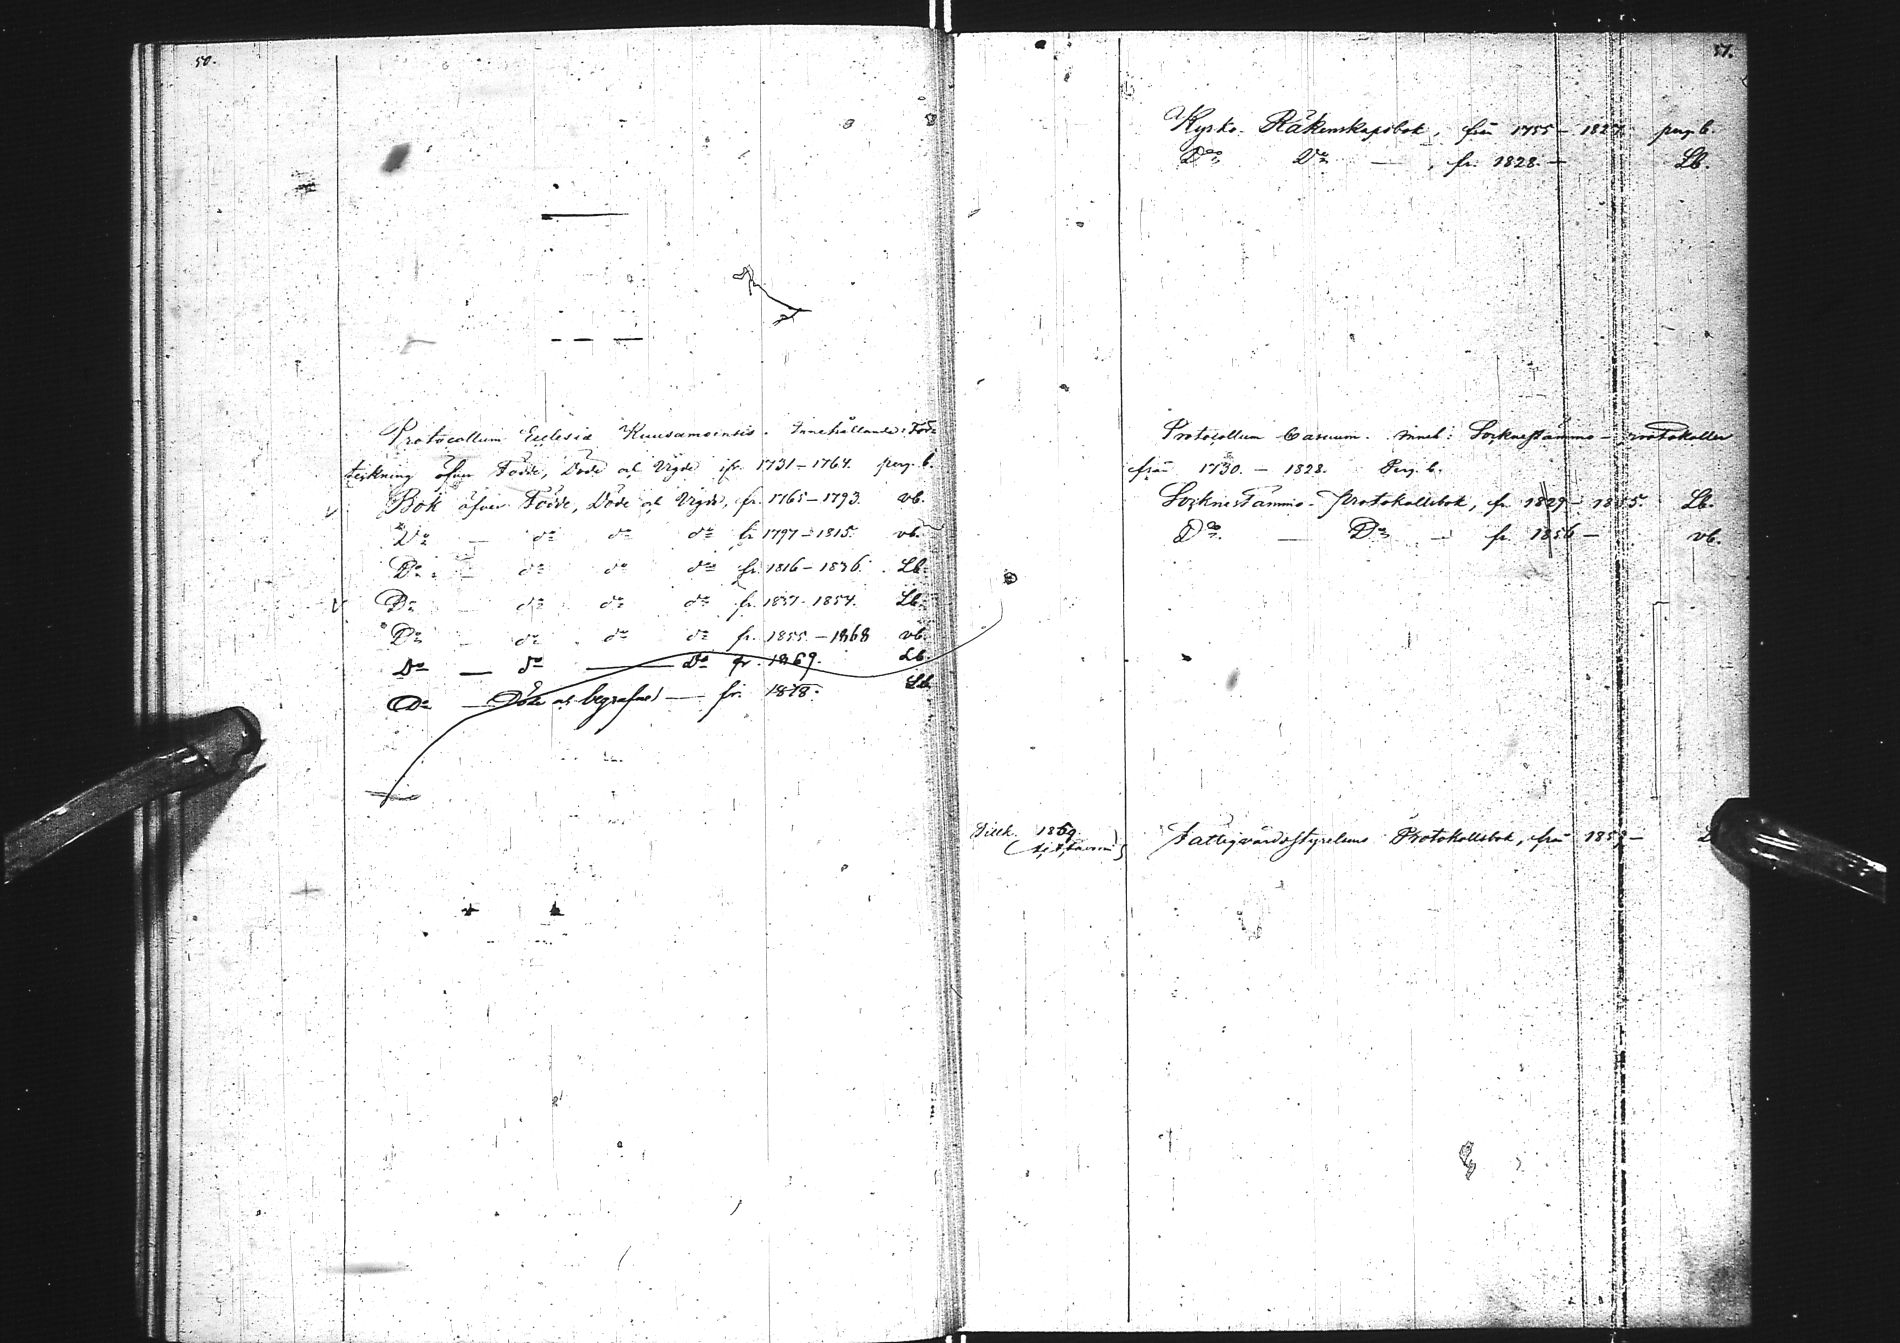 50.
Protocollum Ecclesiæ Kuusamoensis. Innehållande: För-
teckning öfver Födde, Döde och Vigde ifr. 1731–1764. perg. b.
Bok öfver Födde, Döde och Vigde, fr. 1765–1793. vb.
Do — do do do fr. 1797–1815. vb.
Do — do do do fr. 1816–1836. Lb.
Do — do do do fr. 1837–1854. Lb.
Do — do do do fr. 1855–1868 vb.
Do — do — Do fr. 1869. Lb.
Do — Döde och begrafne — fr. 1878. Lb.
51.
Kyrko-Räkenskapsbok, från 1755–1827. perg. b.
Do Do — , fr. 1828.– Lb.
Protocollum Varium. inneh: Sockenstämmo-protokoller
från 1730.–1828. Perg. b.
Sockenstämmo-protokollsbok, fr. 1829–1855. Lb.
Do. — Do — fr. 1856– vb.
1869.
Fattigvårdsstyrelsens Protokollsbok, från 1859–